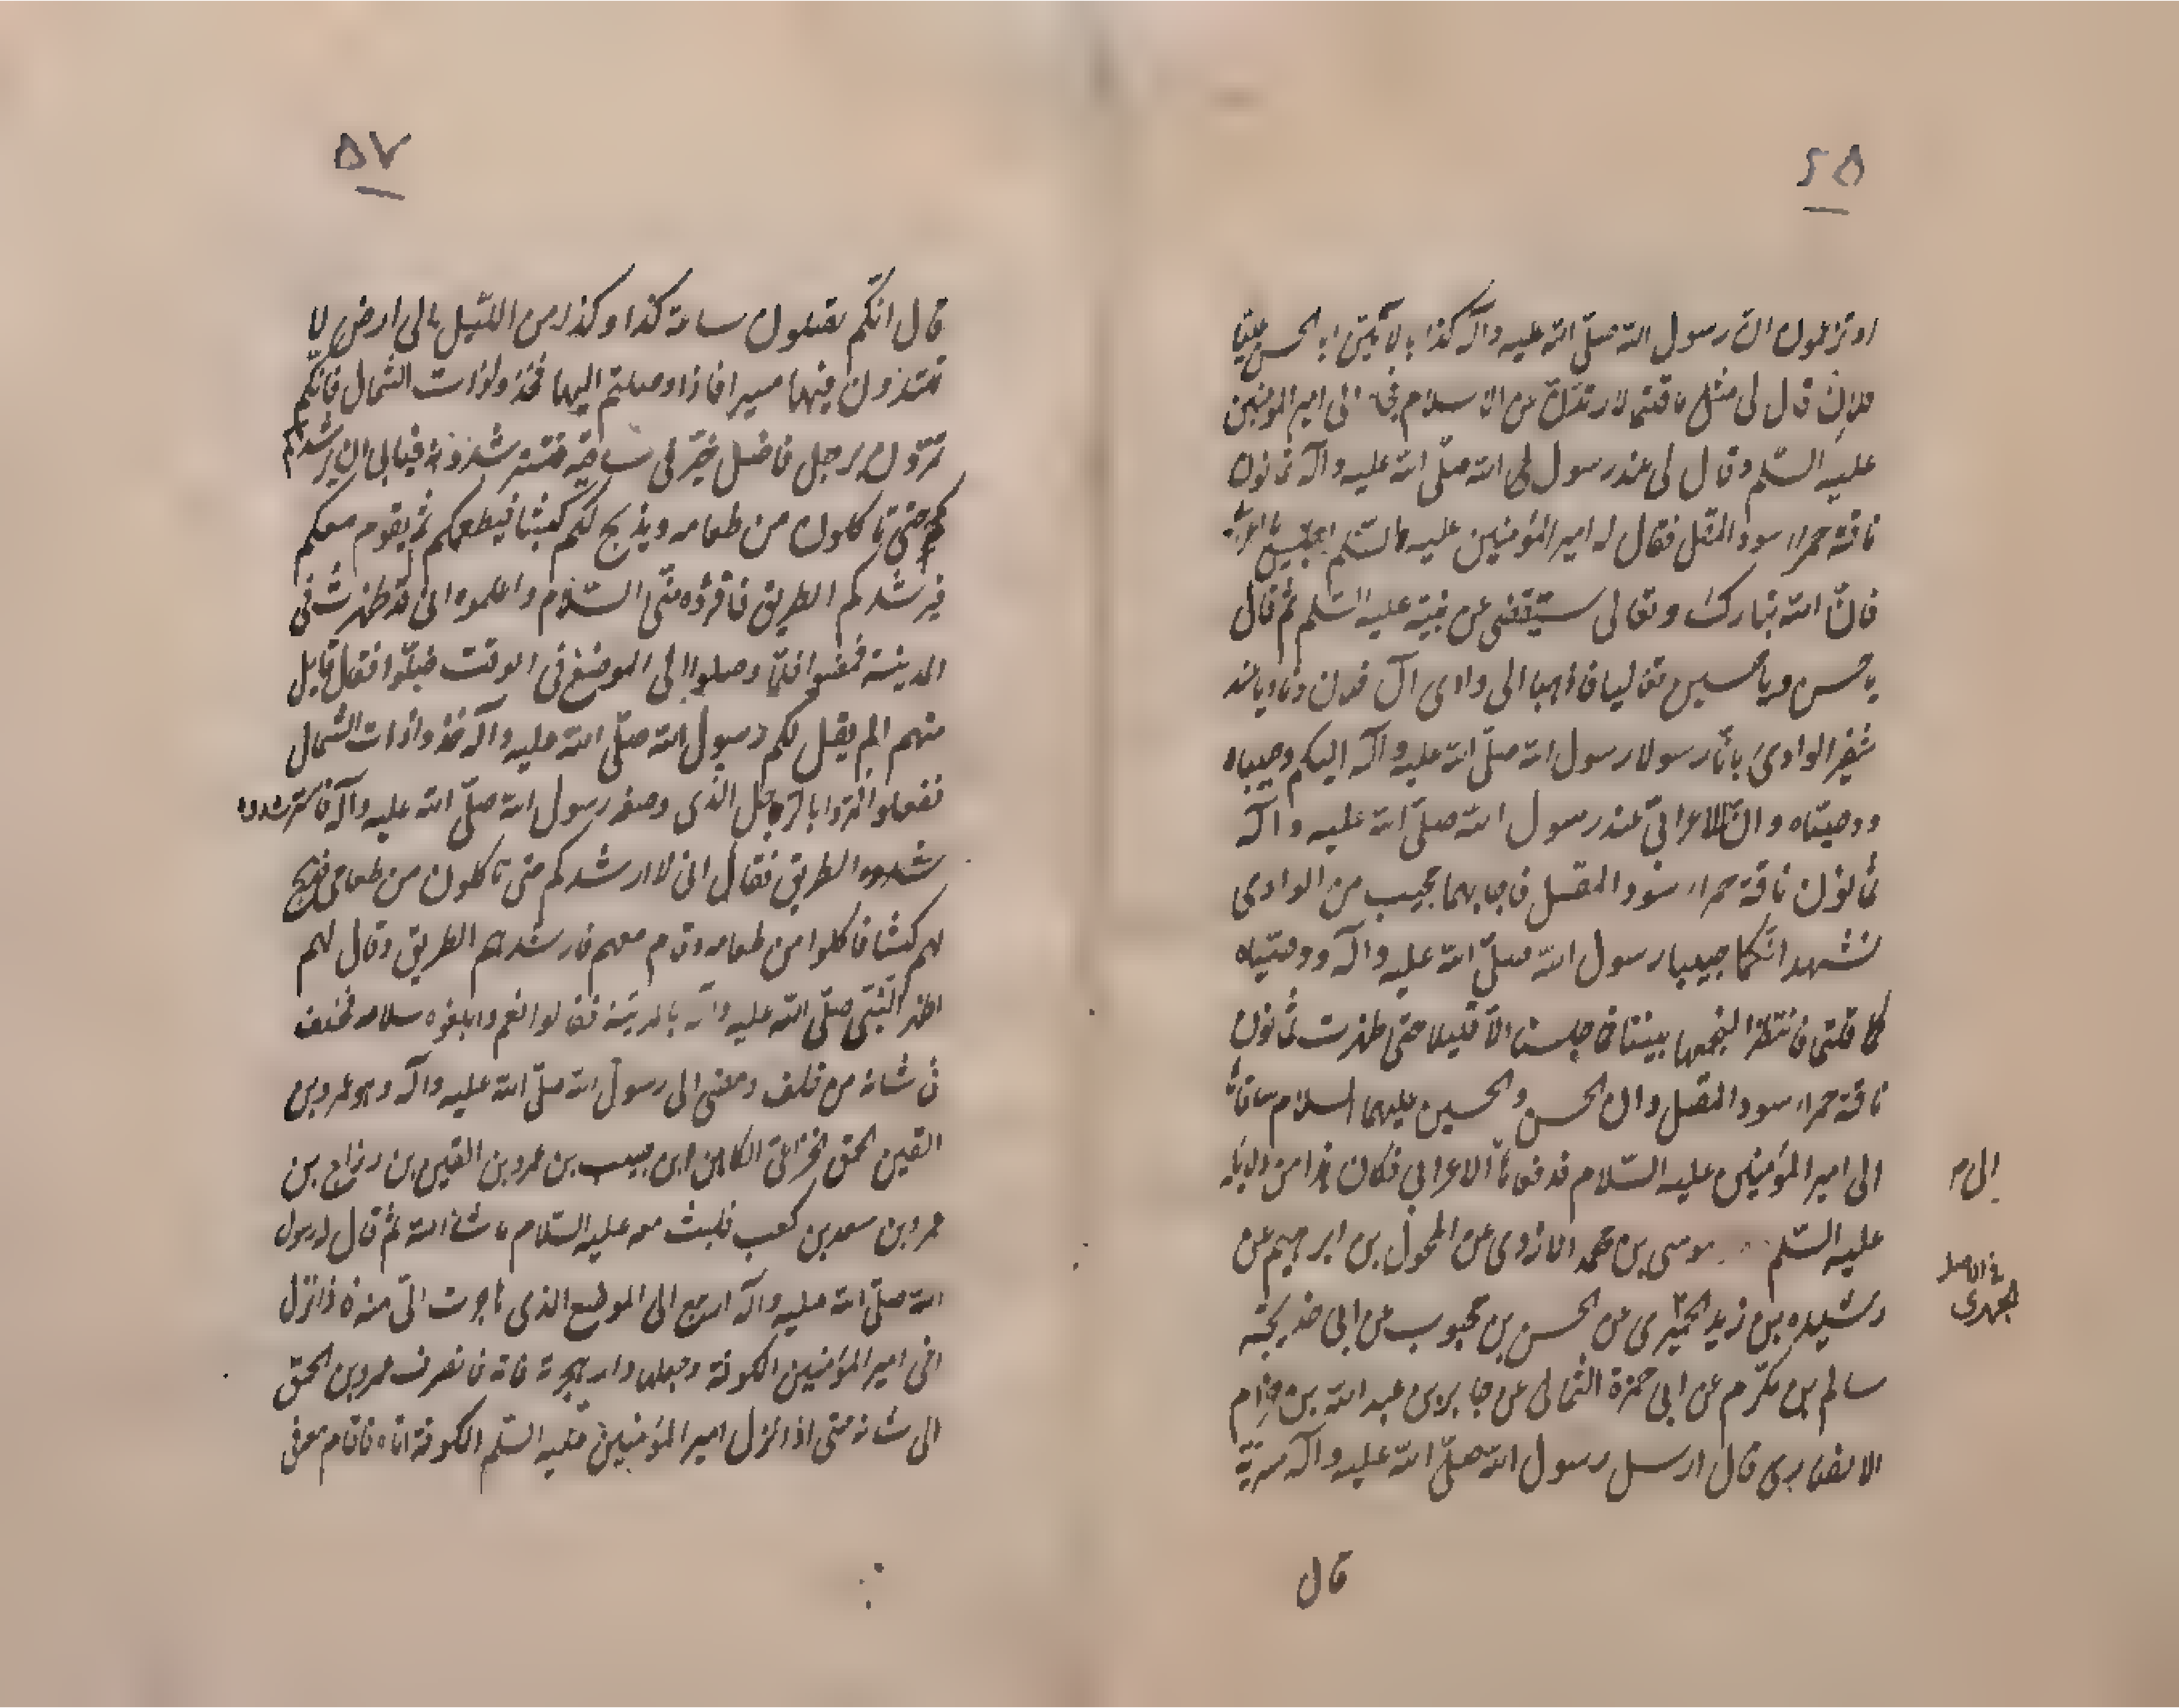 ٤٥
او تزعمون ان رسول الله صلّى الله عليه وآله كذا
فلان قال لى مثل ما قلتم لارتددت عن الاسلام فجاء الى امير المؤمنين
عليه السّلم وقال لى عند رسول الله صلّى الله عليه وآله ثمانون
ناقة حمراء سود المقل فقال له امير المؤمنين عليه السّلم اجلس يا اعرابى
فانّ الله تبارك وتعالى سيقضى عن نبيّه عليه السّلم ثم قال
يا حسن ويا حسين تعاليا فاذهبا الى وادى آل فلان وناديا عند
شفير الوادى بانّا رسولا رسول الله صلّى الله عليه وآله اليكم وحبيباه
ووصيّاه وانّ للاعرابىّ عند رسول الله صلّى الله عليه وآله
ثمانون ناقة حمراء سود المقل فاجابهما مجيب من الوادى
نشهد انّكما حبيبا رسول الله صلّى الله عليه وآله ووصيّاه
كما قلتما فانتظرا لنجمعها بيننا فما جلسنا الّا قليلا حتى ظهرت ثمانون
ناقة حمراء سود المقل وان الحسن والحسين عليهما السلام ساقاها
الى امير المؤمنين عليه السّلام فدفعها الى الاعرابى فكان هذا من دلايله
عليه السّلم موسى بن محمد الازدى عن المخول بن ابرهيم عن
رشيده بن زيد الحميرى عن الحسن بن محبوب عن ابى خديجة
سالم بن مكرم عن ابى حمزة الثمالى عن جابر بن عبد الله بن حزام
الانصارى قال ارسل رسول الله صلّى الله عليه وآله سريّة
قال
٥٧
قال انّكم تصلون ساعة كذا وكذا من اللّيل الى ارض لا
تهتدون فيها مسيرا فاذا وصلتم اليها فخذوا ذات الشمال فانّكم
تمرّون برجل فاضل خيّر فى ساحته فتسترشدونه فيابى ان يرشدكم
حتى تاكلون من طعامه ويذبح لكم كبشا فيطعمكم ثم يقوم معكم
فيرشدكم الطريق فاقرؤه منّى السّلام واعلموه انى قد ظهرت فى
المدينة فمضوا فلمّا وصلوا الى الموضع فى الوقت ضلّوا فقال قايل
منهم الم يقل لكم رسول الله صلّى الله عليه وآله خذوا ذات الشمال
ففعلوا فمرّوا بالرجل الذى وصفه رسول الله صلّى الله عليه وآله فاسترشدوه
الطريق فقال انى لا ارشدكم حتى تاكلون من طعامى فذبح
لهم كبشا فاكلوا من طعامه وقام معهم فارشدهم الطريق وقال لهم
اظهر النّبىّ صلّى الله عليه وآله بالمدينة فقالوا نعم وابلغوه سلامه فخلف
فى شانه من خلف ومضى الى رسول الله صلّى الله عليه وآله وهو عمرو بن
الحمق الخزاعىّ الكاهن ابن حبيب بن عمرو بن القين بن رزاح بن
عمرو بن سعد بن كعب فلبث معه عليه السّلام ما شاء الله ثم قال له رسول
الله صلّى الله عليه وآله ارجع الى الموضع الذى هاجرت الىّ منه فاذا نزل
اخى امير المؤمنين الكوفة وجعلها دار هجرته فاته فانصرف عمرو بن الحمق
الى شانه حتى اذا نزل امير المؤمنين عليه السّلم الكوفة اتاه فاقام معه فى